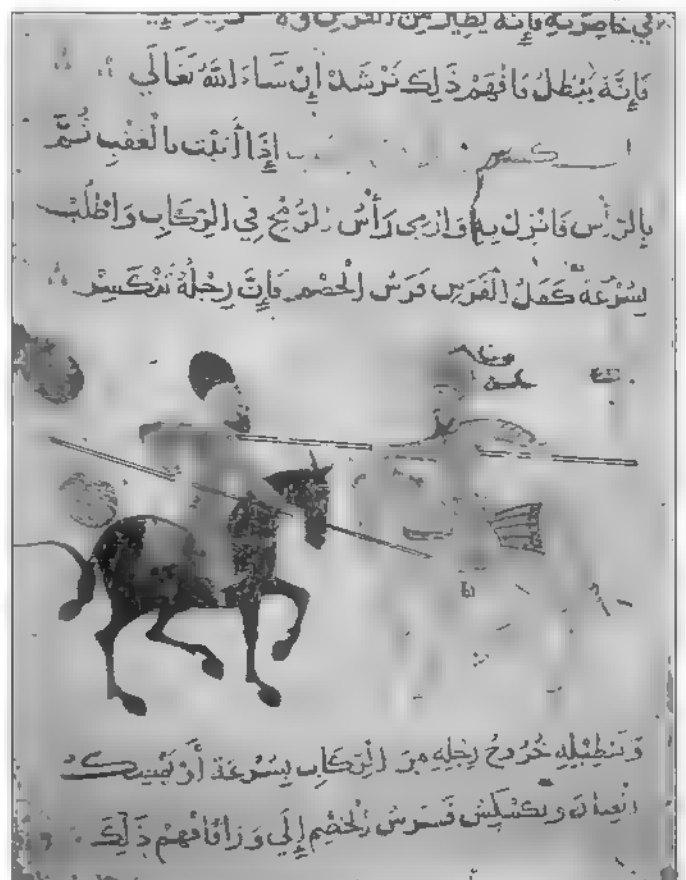 في خاصرته فإنه يطير من الفرس
فَإِنَّهُ يَبْطُلُ فَافْهَمْ ذَلِكَ تَرْشَدْ إِنْ سَاءَ اللهُ تَعَالَي
إِذَا أَتَيْت بالْعَقْبِ ثُمَّ
بِالرَّأْسِ فَانْزِلْ بِهِ وَارْمِي رَأْسَ الرُّمْحِ فِي الرِّكَابِ وَاطْلُبْ
بِسُرْعَةٍ كَفَلَ الْفَرَسِ فَرَسُ الْخَصْمِ فَإِنَّ رِجْلَهُ تَنْكَسِرْ
خُرُوجُ رِجْلِهِ مِنَ الرِّكَابِ بِسُرْعَةٍ أَوْ
الْعِنَانَ فَرَسُ الْخَصْمِ إِلَي وَرَا فَافْهَمْ ذَلِكَ